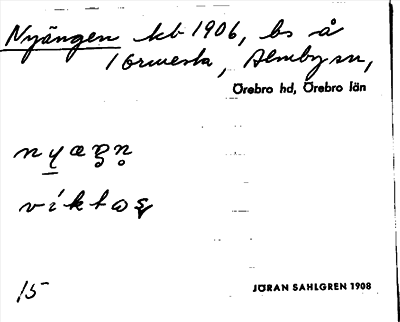 Nyängen kb 1906, bs å
1 Ormesta, Almby sn,
Örebro hd, Örebro län
15
JÖRAN SAHLGREN 1908